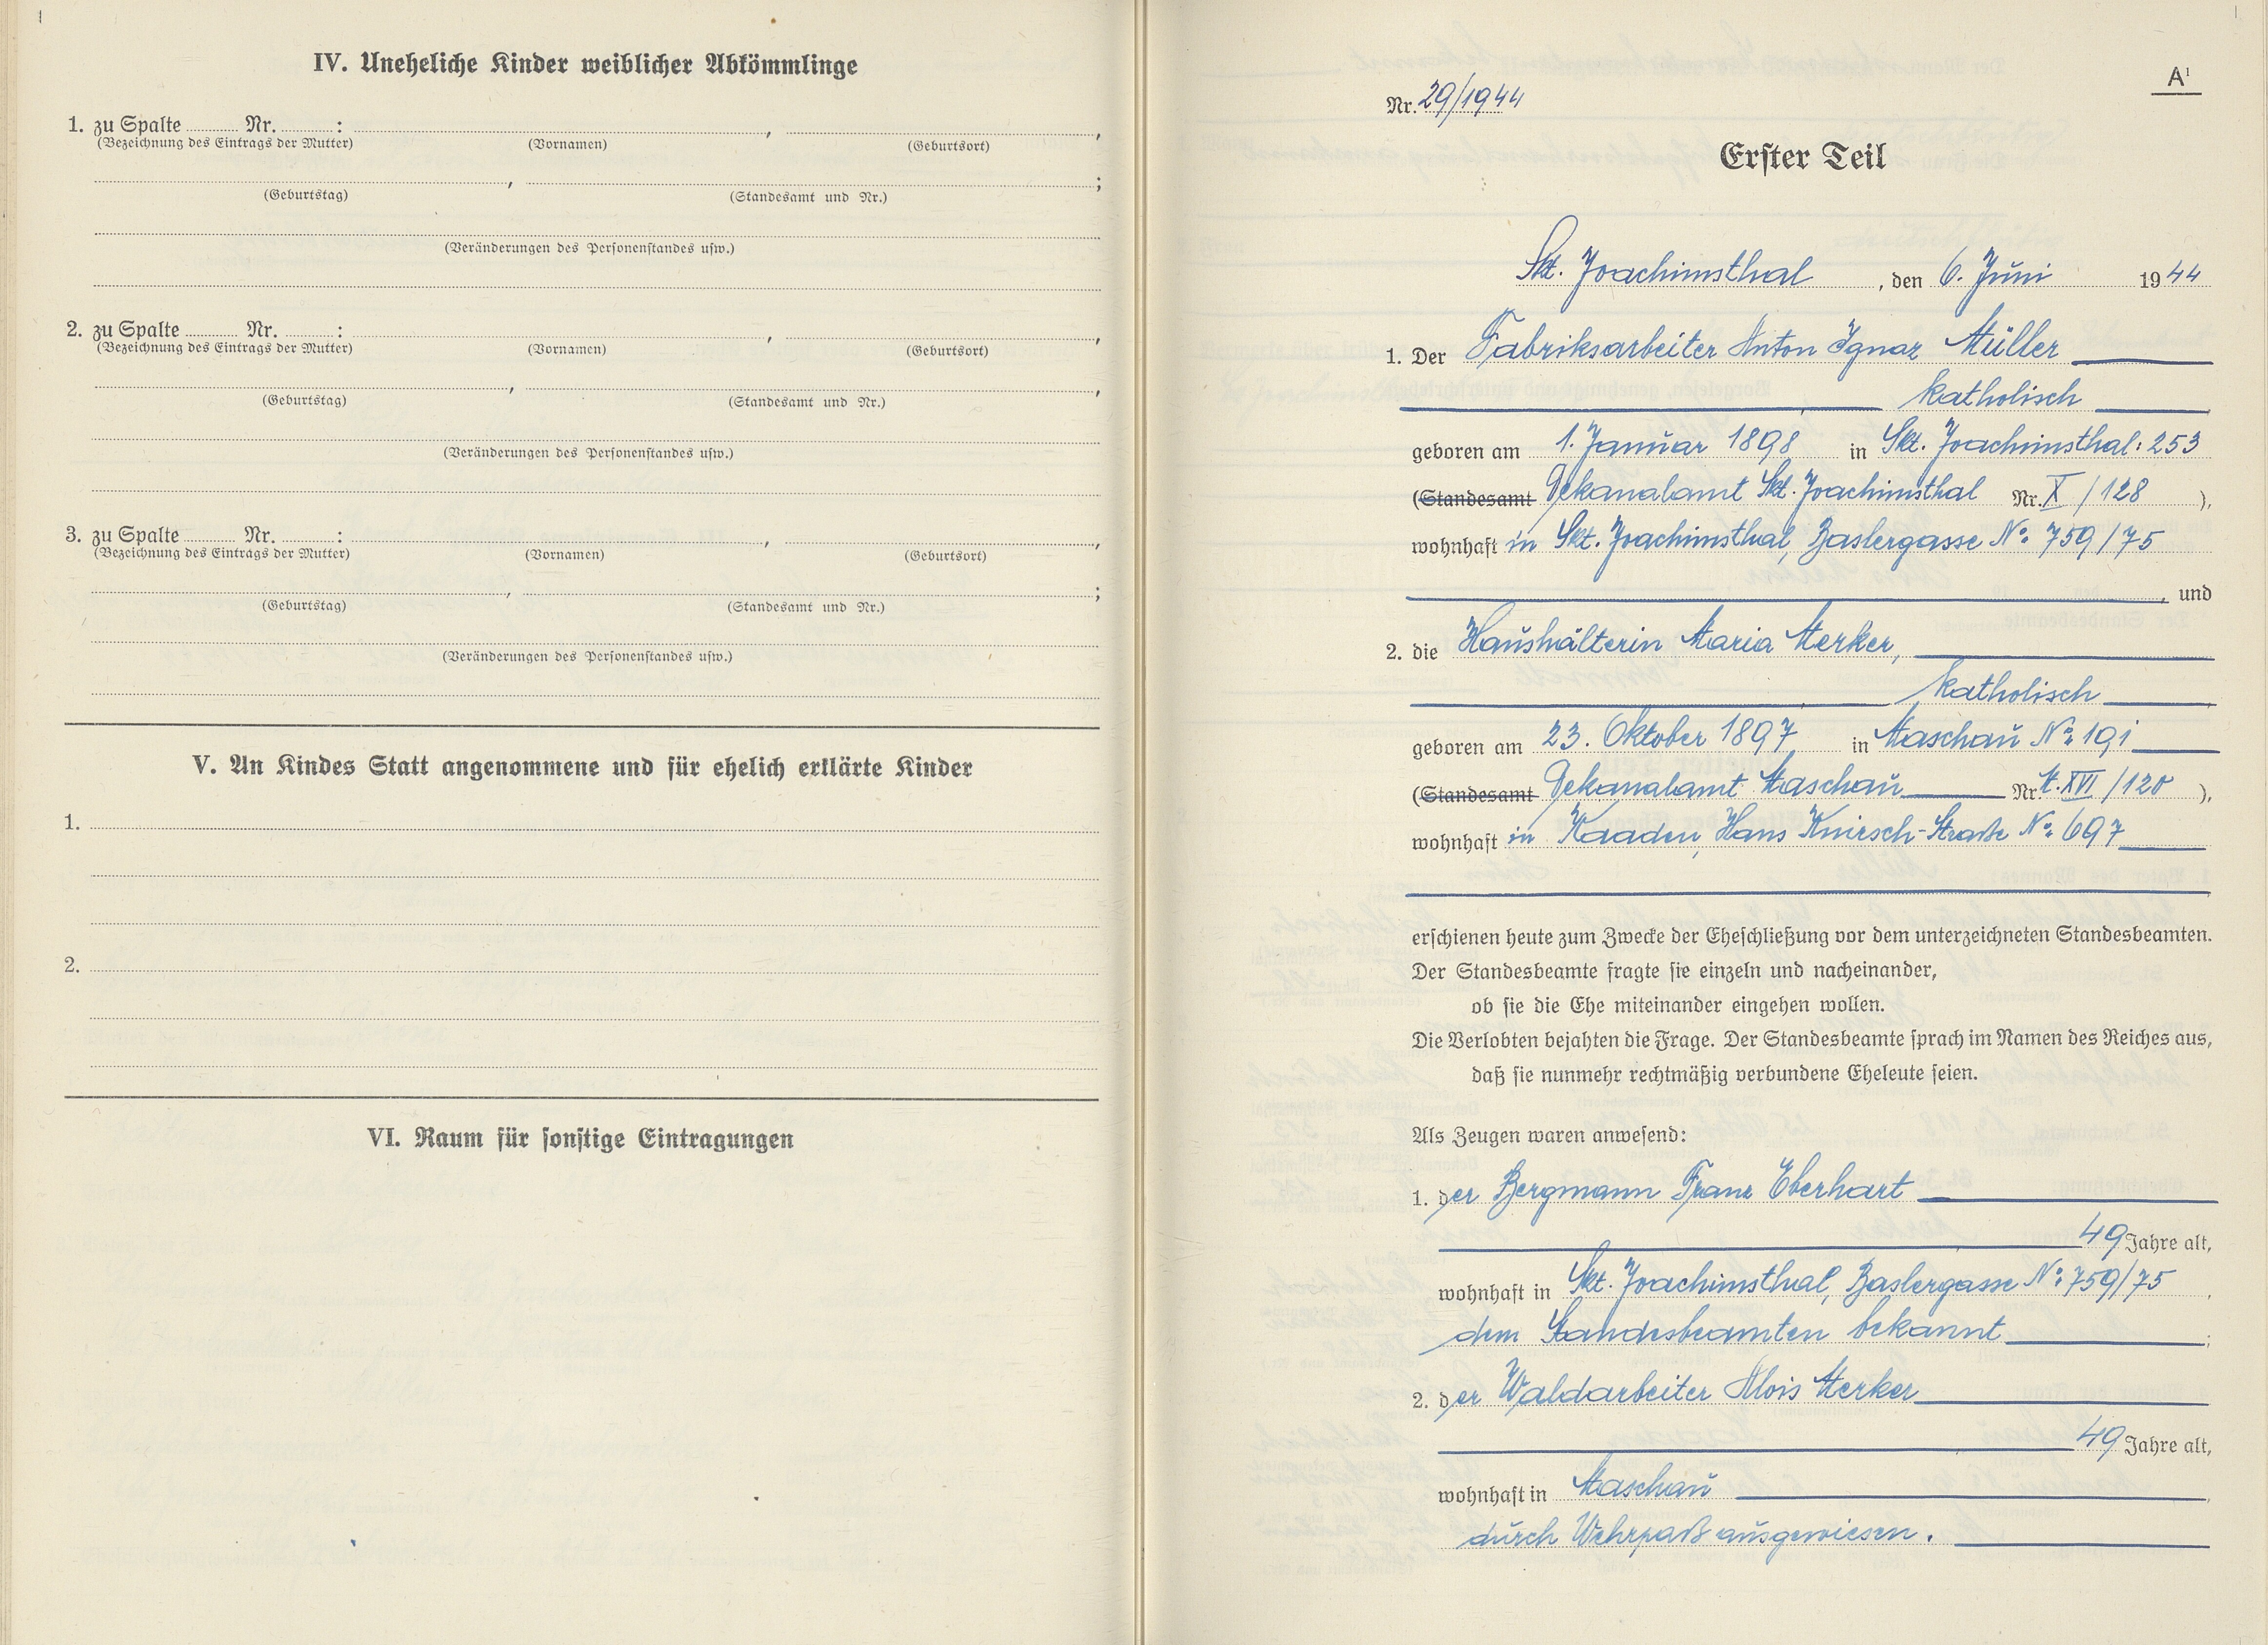 IV. Uneheliche Kinder weiblicher Abkömmlinge
1. zu Spalte ........ Nr. ........ : , ,
(Bezeichnung des Eintrags der Mutter) (Vornamen) (Geburtsort)
, ;
(Geburtstag) (Standesamt und Nr.)
(Veränderungen des Personenstandes usw.)
2. zu Spalte ........ Nr. ........ : , ,
(Bezeichnung des Eintrags der Mutter) (Vornamen) (Geburtsort)
, ,
(Geburtstag) (Standesamt und Nr.)
(Veränderungen des Personenstandes usw.)
3. zu Spalte ........ Nr. ........ : , ,
(Bezeichnung des Eintrags der Mutter) (Vornamen) (Geburtsort)
, ;
(Geburtstag) (Standesamt und Nr.)
(Veränderungen des Personenstandes usw.)
V. An Kindes Statt angenommene und für ehelich erklärte Kinder
1.
2.
VI. Raum für sonstige Eintragungen
A¹
Nr. 29/1944
Erster Teil
Skt. Joachimsthal , den 6. Juni 1944
1. Der Fabriksarbeiter Anton Ignaz Müller
, katholisch ,
geboren am 1. Januar 1898 in Skt. Joachimsthal: 253
(Standesamt Dekanalamt Skt. Joachimsthal Nr. X / 128 ),
wohnhaft in Skt. Joachimsthal, Baslergasse No. 759/75
, und
2. die Haushälterin Maria Merker,
katholisch ,
geboren am 23. Oktober 1897 in Maschau No. 191
(Standesamt Dekanalamt Maschau Nr. t. XVI / 120 ),
wohnhaft in Kaaden, Hans Knirsch-Straße No. 697
erschienen heute zum Zwecke der Eheschließung vor dem unterzeichneten Standesbeamten.
Der Standesbeamte fragte sie einzeln und nacheinander,
ob sie die Ehe miteinander eingehen wollen.
Die Verlobten bejahten die Frage. Der Standesbeamte sprach im Namen des Reiches aus,
daß sie nunmehr rechtmäßig verbundene Eheleute seien.
Als Zeugen waren anwesend:
1. der Bergmann Franz Eberhart
49 Jahre alt,
wohnhaft in Skt. Joachimsthal, Baslergasse No. 759/75 ,
dem Standesbeamten bekannt ;
2. der Waldarbeiter Alois Merker
49 Jahre alt,
wohnhaft in Maschau ,
durch Wehrpaß ausgewiesen.